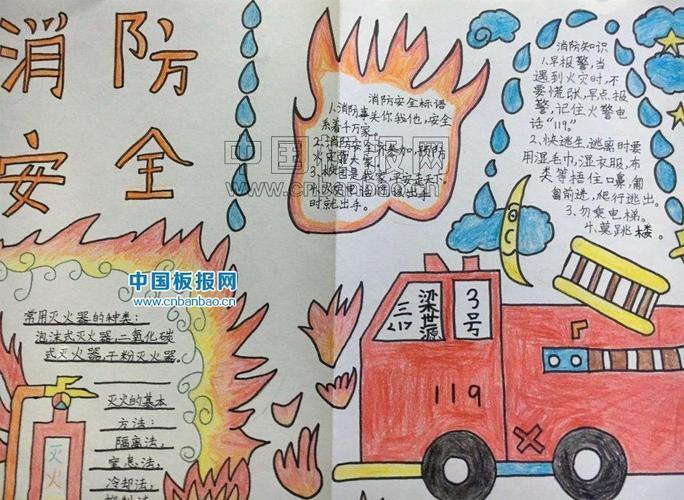 消防
安全
消防安全标语
1.消防事关你我他,安全
系着千万家。
2.消防安全齐参加,预防
火灾靠大家。
时就出手。
消防知识
1.早报警,当
遇到火灾时,不
要慌张,早点报
警,记住火警电
话“119”
2.快逃生,逃离时要
用湿毛巾,湿衣服,布
类等捂住口鼻,匍
匐前进,爬行逃出。
3.勿乘电梯。
4.莫跳楼。
中国板报网
www.cnbanbao.cn
常用灭火器的种类:
泡沫式灭火器,二氧化碳
式灭火器,干粉灭火器。
灭火的基本
方法:
隔离法,
窒息法,
冷却法,
灭火
三217
梁世源
3号
119